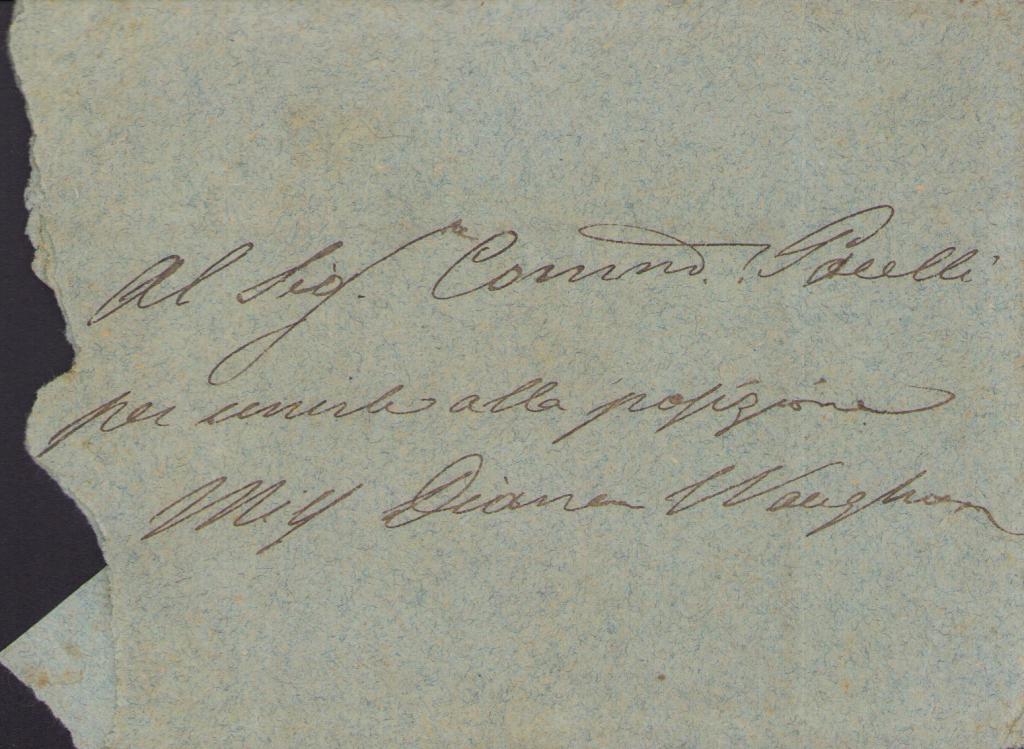 Al Sig.re Commd. Pacelli
per unirle alla posizione
Miss Diana Vaughan